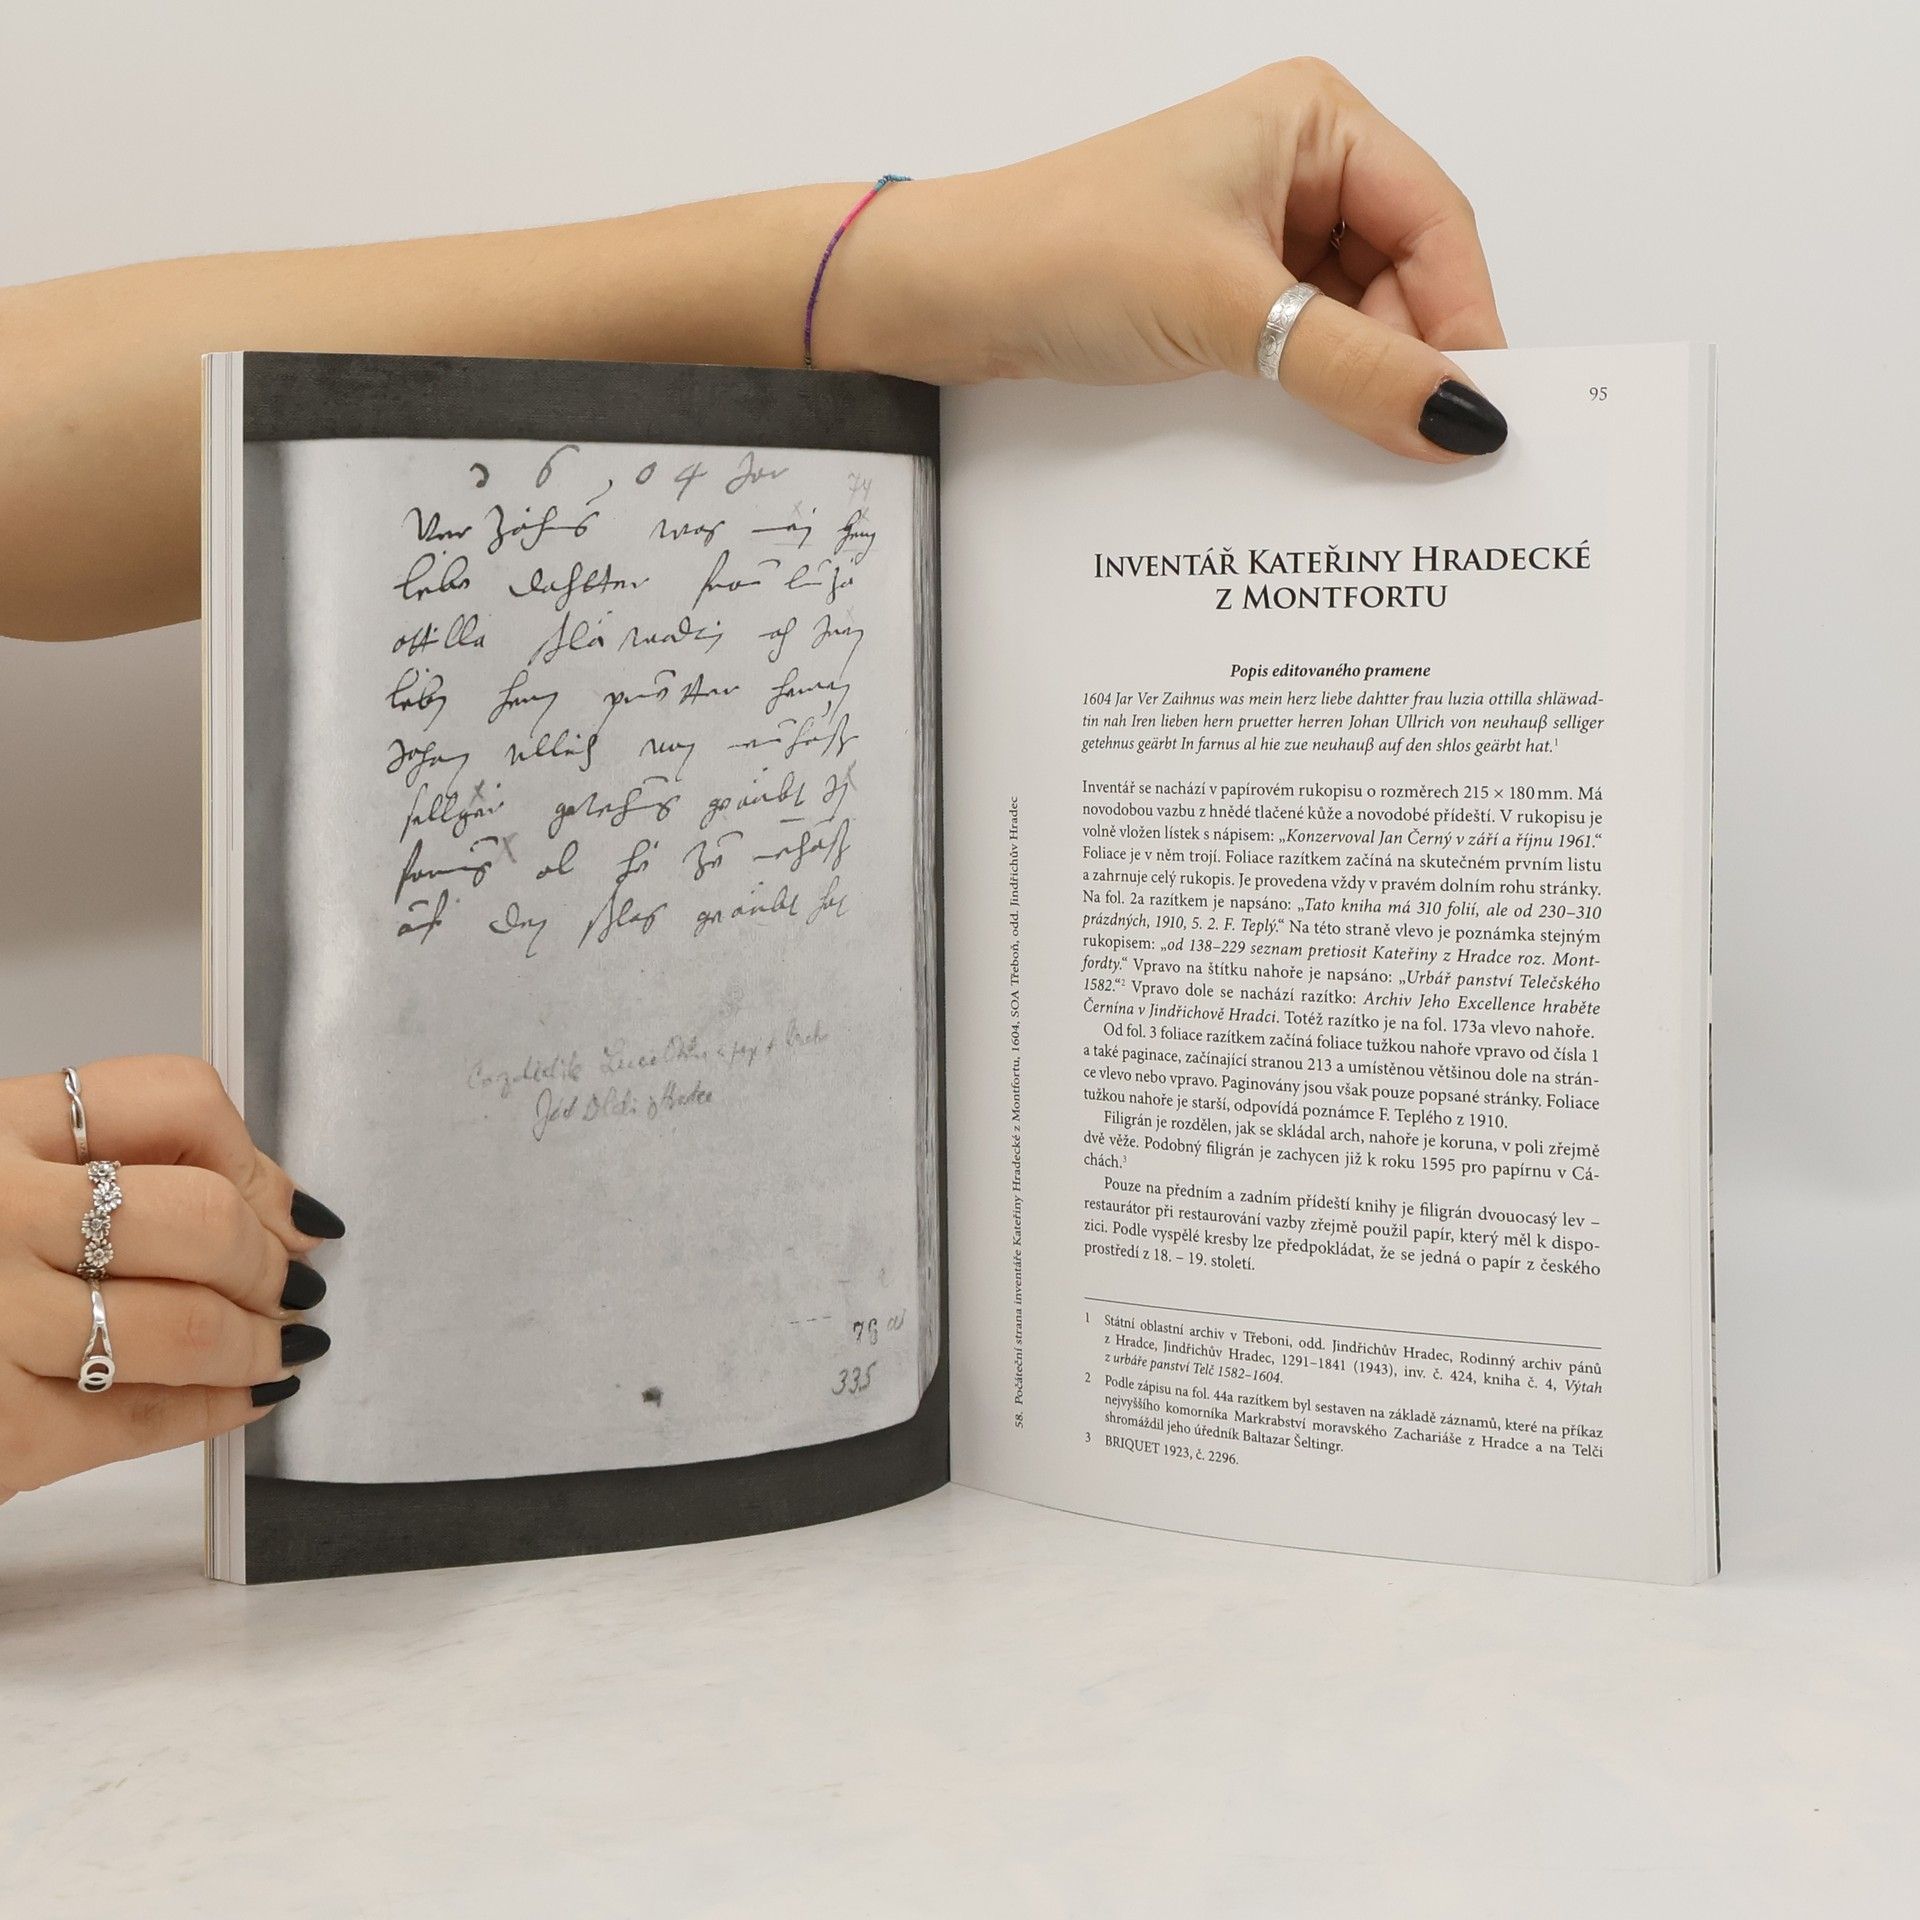 1604 Jar
74
Ver Zaihnus was mein herz
liebe dahtter frau luzia
ottilla shläwadtin nah Iren
lieben hern pruetter herren
Johan Ullrich von neuhauß
selliger getehnus geärbt In
farnus al hie zue neuhauß
auf den shlos geärbt hat
335
58. Počáteční strana inventáře Kateřiny Hradecké z Montfortu, 1604, SOA Třeboň, odd. Jindřichův Hradec
95
INVENTÁŘ KATEŘINY HRADECKÉ
Z MONTFORTU
Popis editovaného pramene
1604 Jar Ver Zaihnus was mein herz liebe dahtter frau luzia ottilla shläwad-
tin nah Iren lieben hern pruetter herren Johan Ullrich von neuhauß selliger
getehnus geärbt In farnus al hie zue neuhauß auf den shlos geärbt hat.¹
Inventář se nachází v papírovém rukopisu o rozměrech 215 × 180 mm. Má
novodobou vazbu z hnědé tlačené kůže a novodobé přídeští. V rukopisu je
volně vložen lístek s nápisem: „Konzervoval Jan Černý v září a říjnu 1961.“
Foliace je v něm trojí. Foliace razítkem začíná na skutečném prvním listu
a zahrnuje celý rukopis. Je provedena vždy v pravém dolním rohu stránky.
Na fol. 2a razítkem je napsáno: „Tato kniha má 310 folií, ale od 230–310
prázdných, 1910, 5. 2. F. Teplý.“ Na této straně vlevo je poznámka stejným
rukopisem: „od 138–229 seznam pretiosit Kateřiny z Hradce roz. Mont-
fordty.“ Vpravo na štítku nahoře je napsáno: „Urbář panství Telečského
1582.“² Vpravo dole se nachází razítko: Archiv Jeho Excellence hraběte
Černína v Jindřichově Hradci. Totéž razítko je na fol. 173a vlevo nahoře.
Od fol. 3 foliace razítkem začíná foliace tužkou nahoře vpravo od čísla 1
a také paginace, začínající stranou 213 a umístěnou většinou dole na strán-
ce vlevo nebo vpravo. Paginovány jsou však pouze popsané stránky. Foliace
tužkou nahoře je starší, odpovídá poznámce F. Teplého z 1910.
Filigrán je rozdělen, jak se skládal arch, nahoře je koruna, v poli zřejmě
dvě věže. Podobný filigrán je zachycen již k roku 1595 pro papírnu v Cá-
chách.³
Pouze na předním a zadním přídeští knihy je filigrán dvouocasý lev –
restaurátor při restaurování vazby zřejmě použil papír, který měl k dispo-
zici. Podle vyspělé kresby lze předpokládat, že se jedná o papír z českého
prostředí z 18. – 19. století.
1 Státní oblastní archiv v Třeboni, odd. Jindřichův Hradec, Rodinný archiv pánů
z Hradce, Jindřichův Hradec, 1291–1841 (1943), inv. č. 424, kniha č. 4, Výtah
z urbáře panství Telč 1582–1604.
2 Podle zápisu na fol. 44a razítkem byl sestaven na základě záznamů, které na příkaz
nejvyššího komorníka Markrabství moravského Zachariáše z Hradce a na Telči
shromáždil jeho úředník Baltazar Šeltingr.
3 BRIQUET 1923, č. 2296.